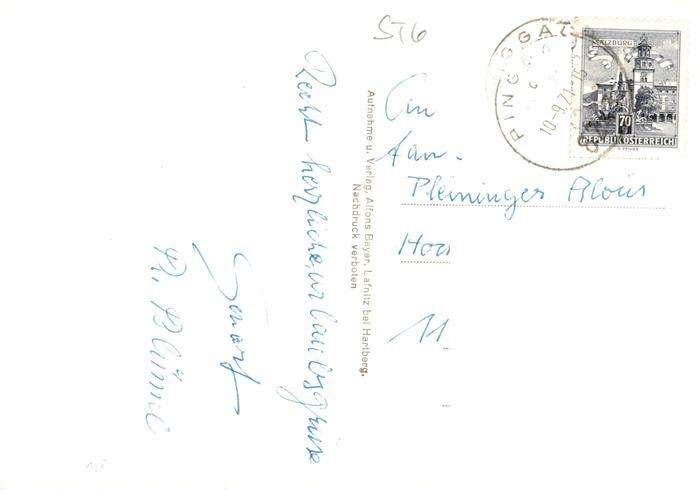 ST6
An
Fam.
Pleininger Alois
11
Recht herzliche Urlaubsgrüße
Aufnahme u. Verlag, Alfons Bayer, Lafnitz bei Hartberg.
Nachdruck verboten
PINGGAU
10-9.71-15
SALZBURG
70
REPUBLIK ÖSTERREICH